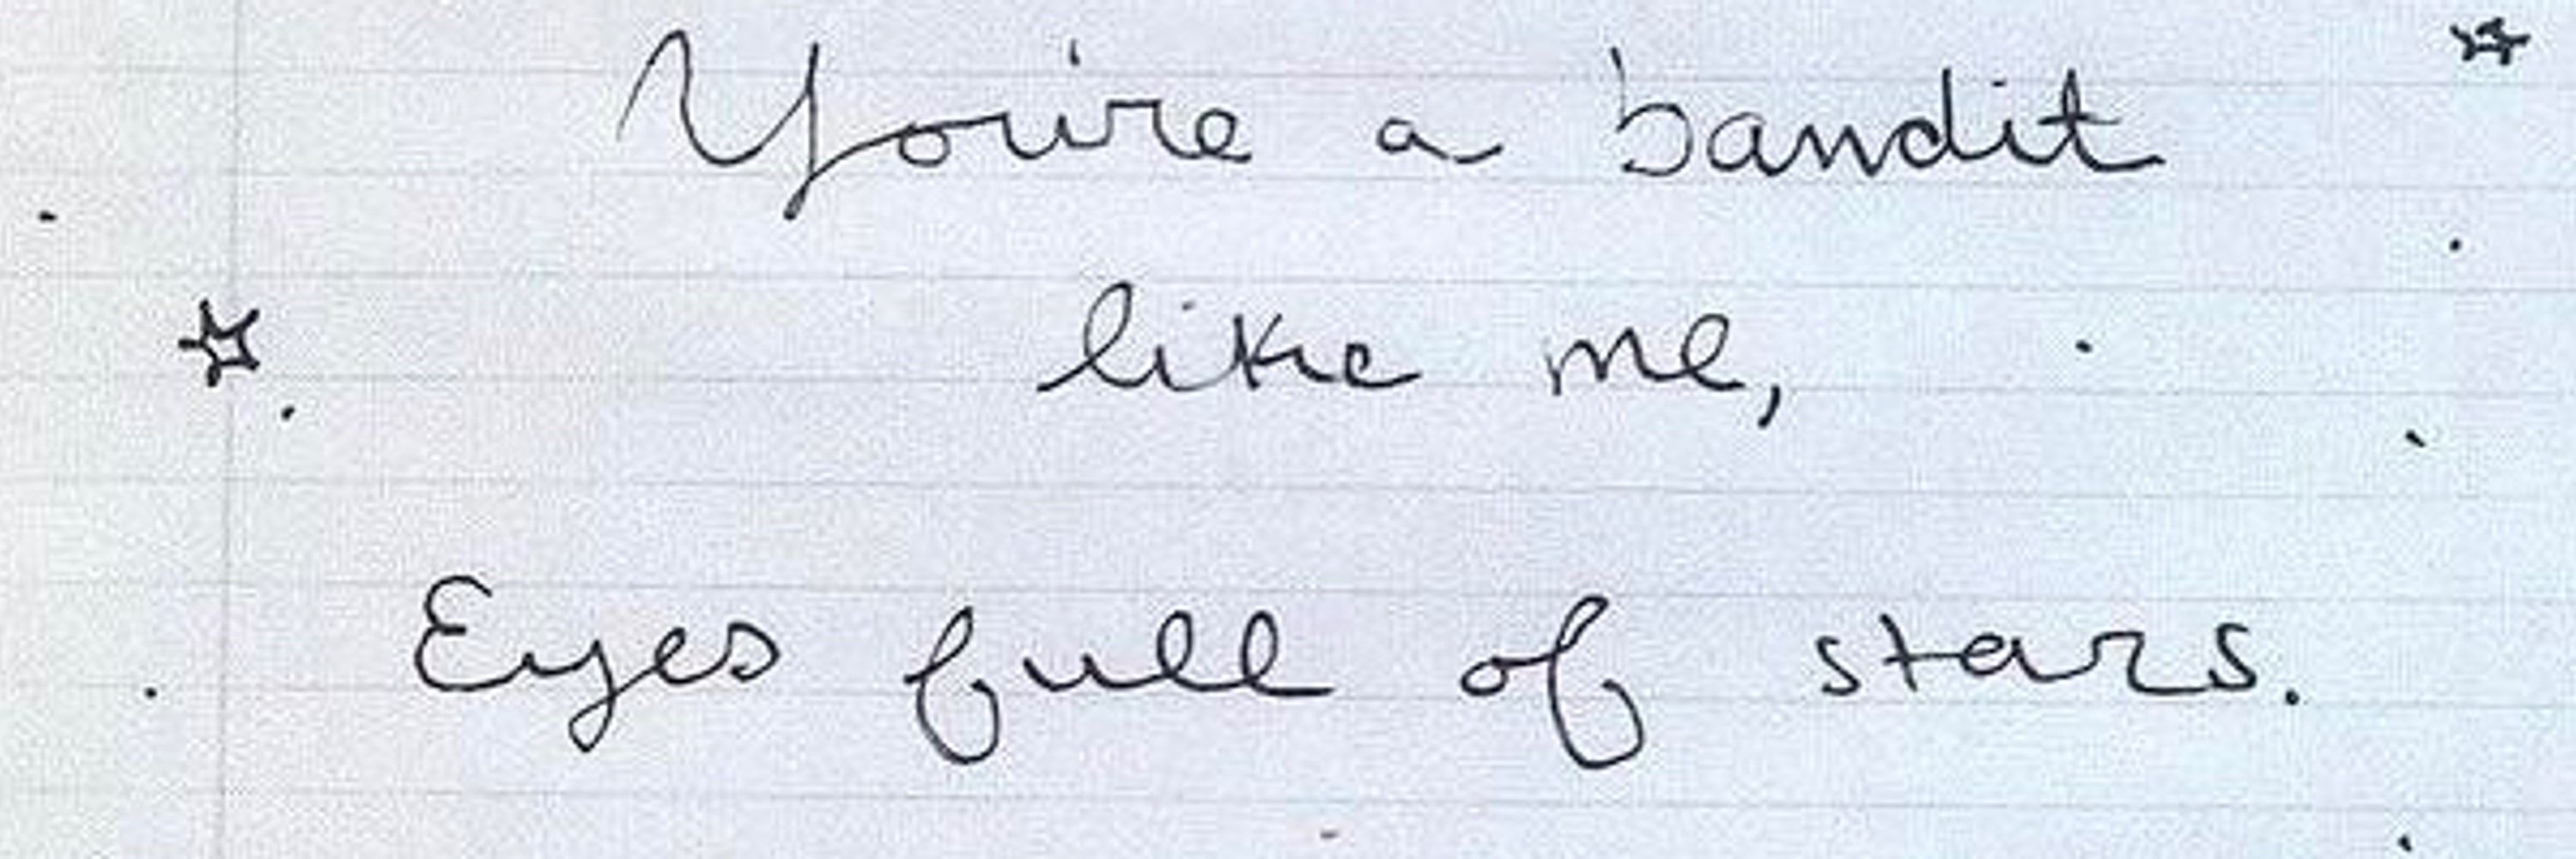 You're a bandit
like me,
Eyes full of stars.